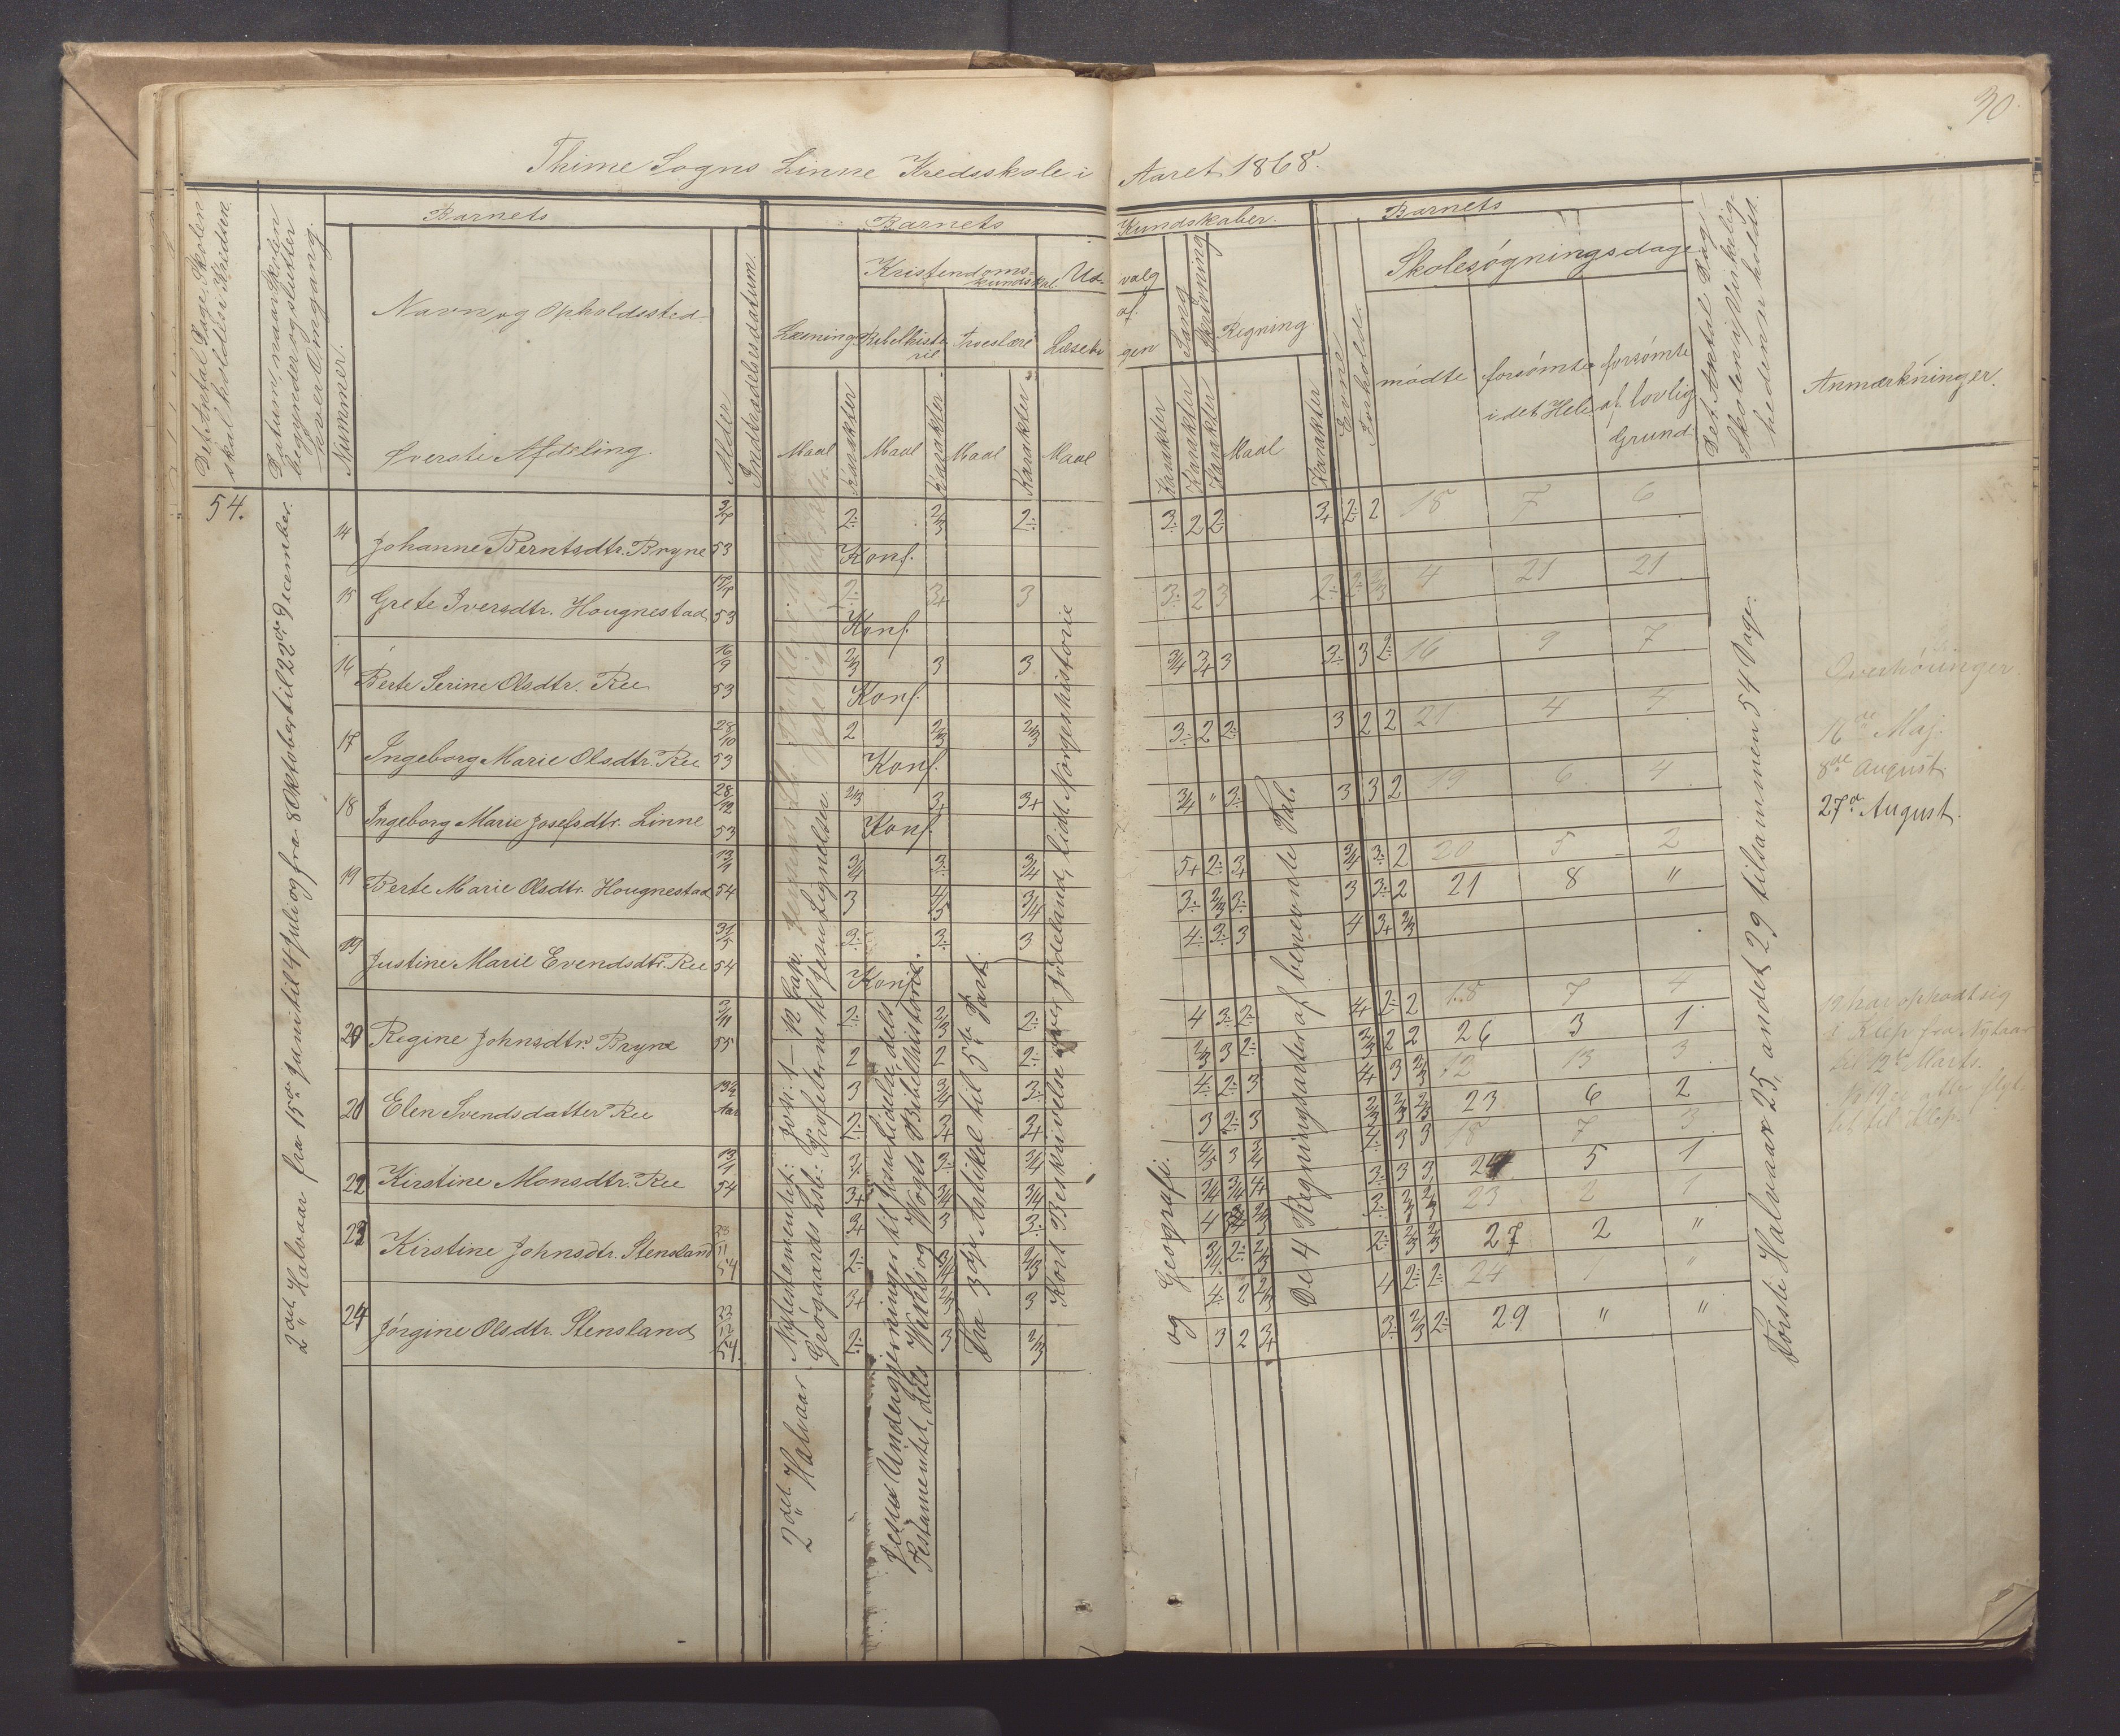 30.
Thime Sogns Linne Kredsskole i Aaret 1868.
Det Antal Dage, Skolen skal holdes i Kredsen.
Datum, naar Skolen begynder og slutter hver Omgang.
Nummer.
Barnets
Navn og Opholdssted.
Øverste Afdeling.
Alder
Indtrædelsesdatum.
Barnets Kundskaber.
Læsning
Kristendomskundskab.
Bibelhistorie
Troeslære
Udvalg af Læsebogen
Sang
Skrivning
Regning
Maal Karakter Maal Karakter Maal Karakter Maal
Karakter Karakter Karakter Maal Karakter
Barnets
Evne
Forhold.
Skolesøgningsdage
mødte
forsømte i det Hele
forsømte af lovlig Grund.
Det Antal Dage Skolen i Virkeligheden er holdt.
Anmærkninger.
54.
2det Halvaar fra 15de Juni til 4 Juli og fra 8 Oktober til 22de December.
14 Johanne Berntsdtr. Bryne 53 2÷ 2/3 2÷ 3÷ 2 2÷ 3+ 2÷ 2 15 7 6
Konf.
15 Grete Iversdtr. Hougnestad 53 2÷ 3+ 3 3÷ 2 3 2÷ 2÷ 2/3 4 21 21
Konf.
16 Berte Serine Olsdtr. Ree 16/9 53 2/3 3 3 3/4 3+ 3 3÷ 3 2÷ 16 9 7
Konf.
17 Ingeborg Marie Olsdtr. Ree 28/10 53 2 2/3 2/3 3÷ 2 2÷ 3 2 2 21 4 4
Konf.
18 Ingeborg Marie Josefsdtr. Linne 28/12 53 2/3 3+ 3+ 3/4 " 3÷ 3 3 2 19 6 4
Konf.
19 Berte Marie Olsdtr. Hougnestad 13/1 54 3/4 3÷ 3/4 5+ 2÷ 3+ 3/4 3÷ 2 20 5 2
3 4/5 3/4 3÷ 2/3 3÷ 3 3÷ 2 21 8 "
19 Justine Marie Evendsdtr. Ree 31/5 54 2÷ 3÷ 3 4÷ 3÷ 3 4 3+ 2/3
Konf.
20 Regine Johnsdtr. Bryne 3/11 55 2÷ 2/3 2÷ 4 3÷ 2÷ 4+ 2÷ 2 18 7 4
2 2 2÷ 2/3 3 2÷ 2/3 2 2 26 3 1
21 Elen Svendsdatter Ree 13½ Aar 3 3/4 3÷ 4÷ 2÷ 3 4+ 3 2/3 12 13 3
2÷ 3+ 3+ 3 2÷ 3 2/3 2/3 2/3 23 6 2
22 Kirstine Monsdtr. Ree 13/1 54 3/4 3÷ 3/4 4/5 3 3/4 4÷ 3 3 18 7 3
3+ 3/4 3/4 3/4 3/4 4+ 3÷ 3 3 24 5 1
23 Kirstine Johnsdtr. Stensland 28/11 54 3+ 3 3÷ 4 3/4 2/3 3÷ 2/3 2/3 23 2 1
2÷ 3/4 2/3 3/4 2÷ 2/3 2÷ 2/3 2/3 27 2 "
24 Jørgine Olsdtr. Stensland 23/12 54 3+ 2/3 3 4÷ 2 2/3 4 2÷ 2÷ 24 1 "
2÷ 3 2/3 3 2 3+ 3÷ 2/3 2÷ 29 " "
2det Halvaar Nytestementet: Joh: 1 – 12 Cap.
Grøgaards Læb: Profeterne til Jesu Lignelser.
Jesu Undergjerninger til Jesu Lidelse, dels
Testamentet, dels Wexels og Vogts Bibelhistorie.
Fra 3dje Artikel til 5te Part.
Kort Beskrivelse over Jødeland, lidt Norgeshistorie
og Geografi.
De 4 Regningsarter af benevnte Tal.
Første Halvaar 25, andet 29 tilsammen 54 Dage.
Overhøringer.
16de Maj.
8de August.
27de August.
12 har opholdt sig
i Klep fra Nytaar
til 12te Marts.
No 19 er atter flyt-
tet til Klep.